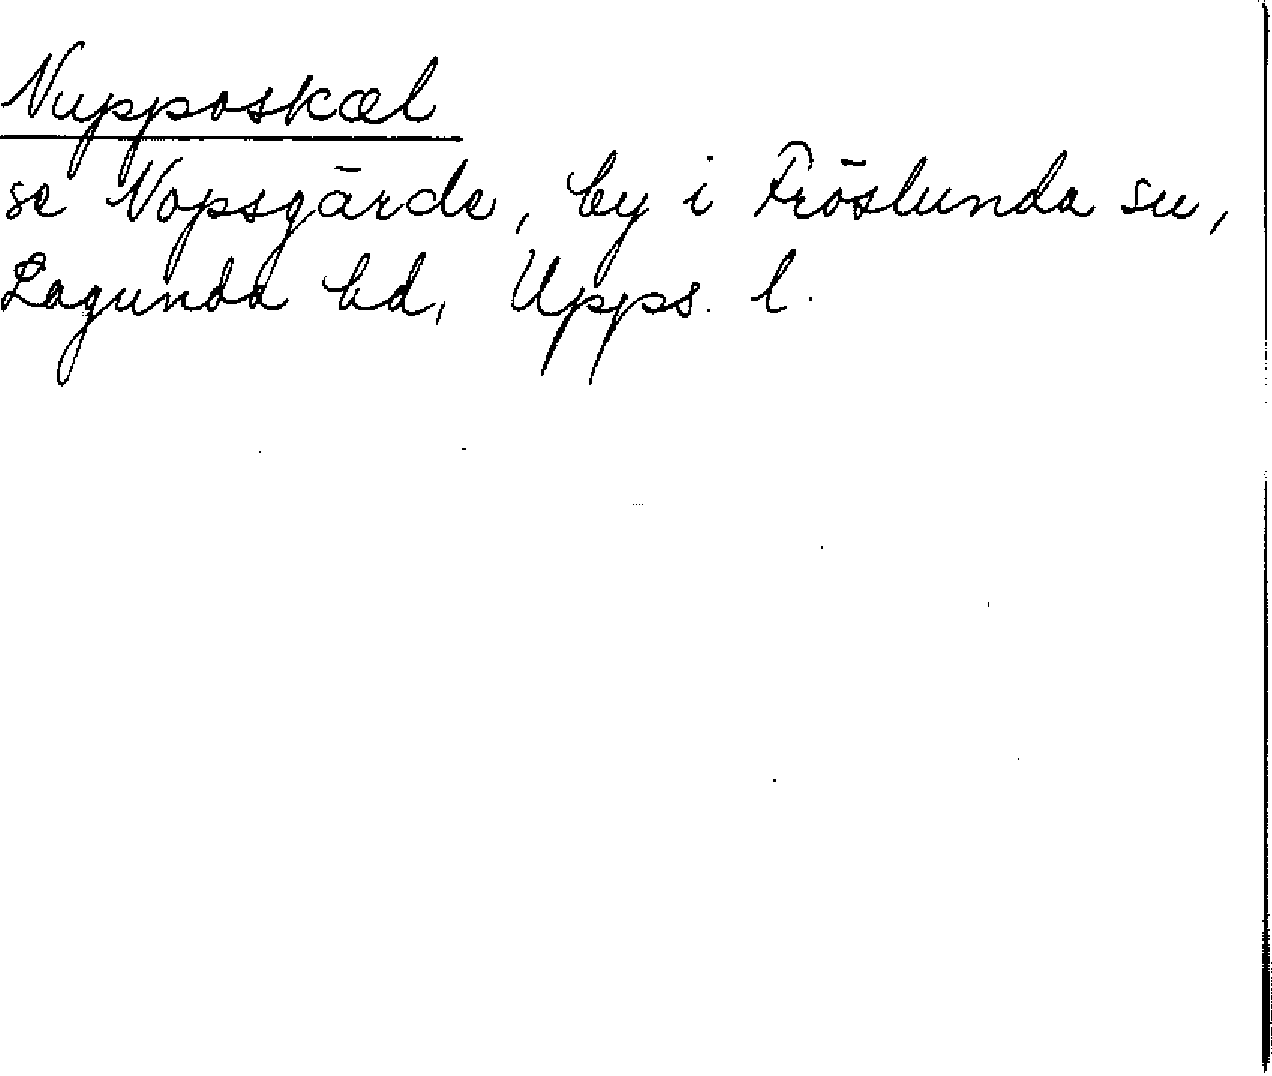 Nupposkæl
se Nopsgärde, by i Fröslunda sn,
Lagunda hd, Upps. l.